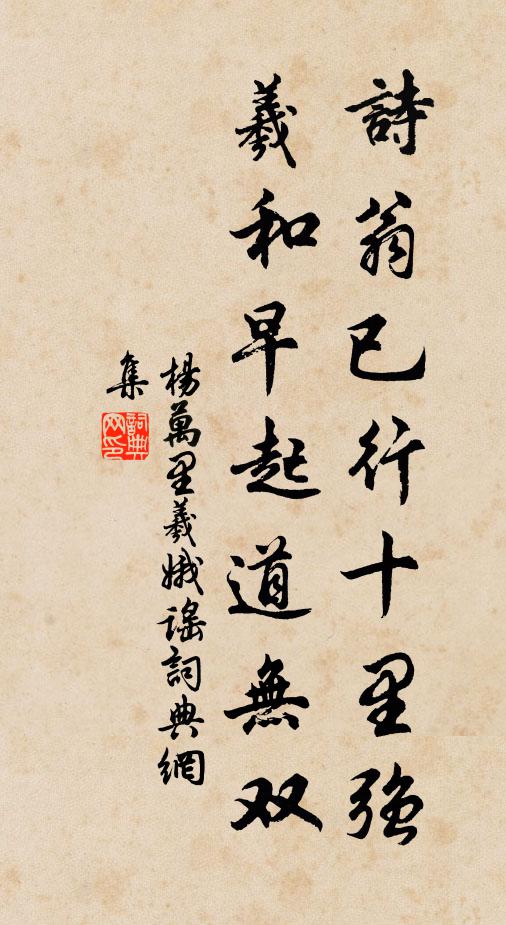 詩翁已行十里強
羲和早起道無双
楊萬里羲娥謠詞典網
集
詞典
网印